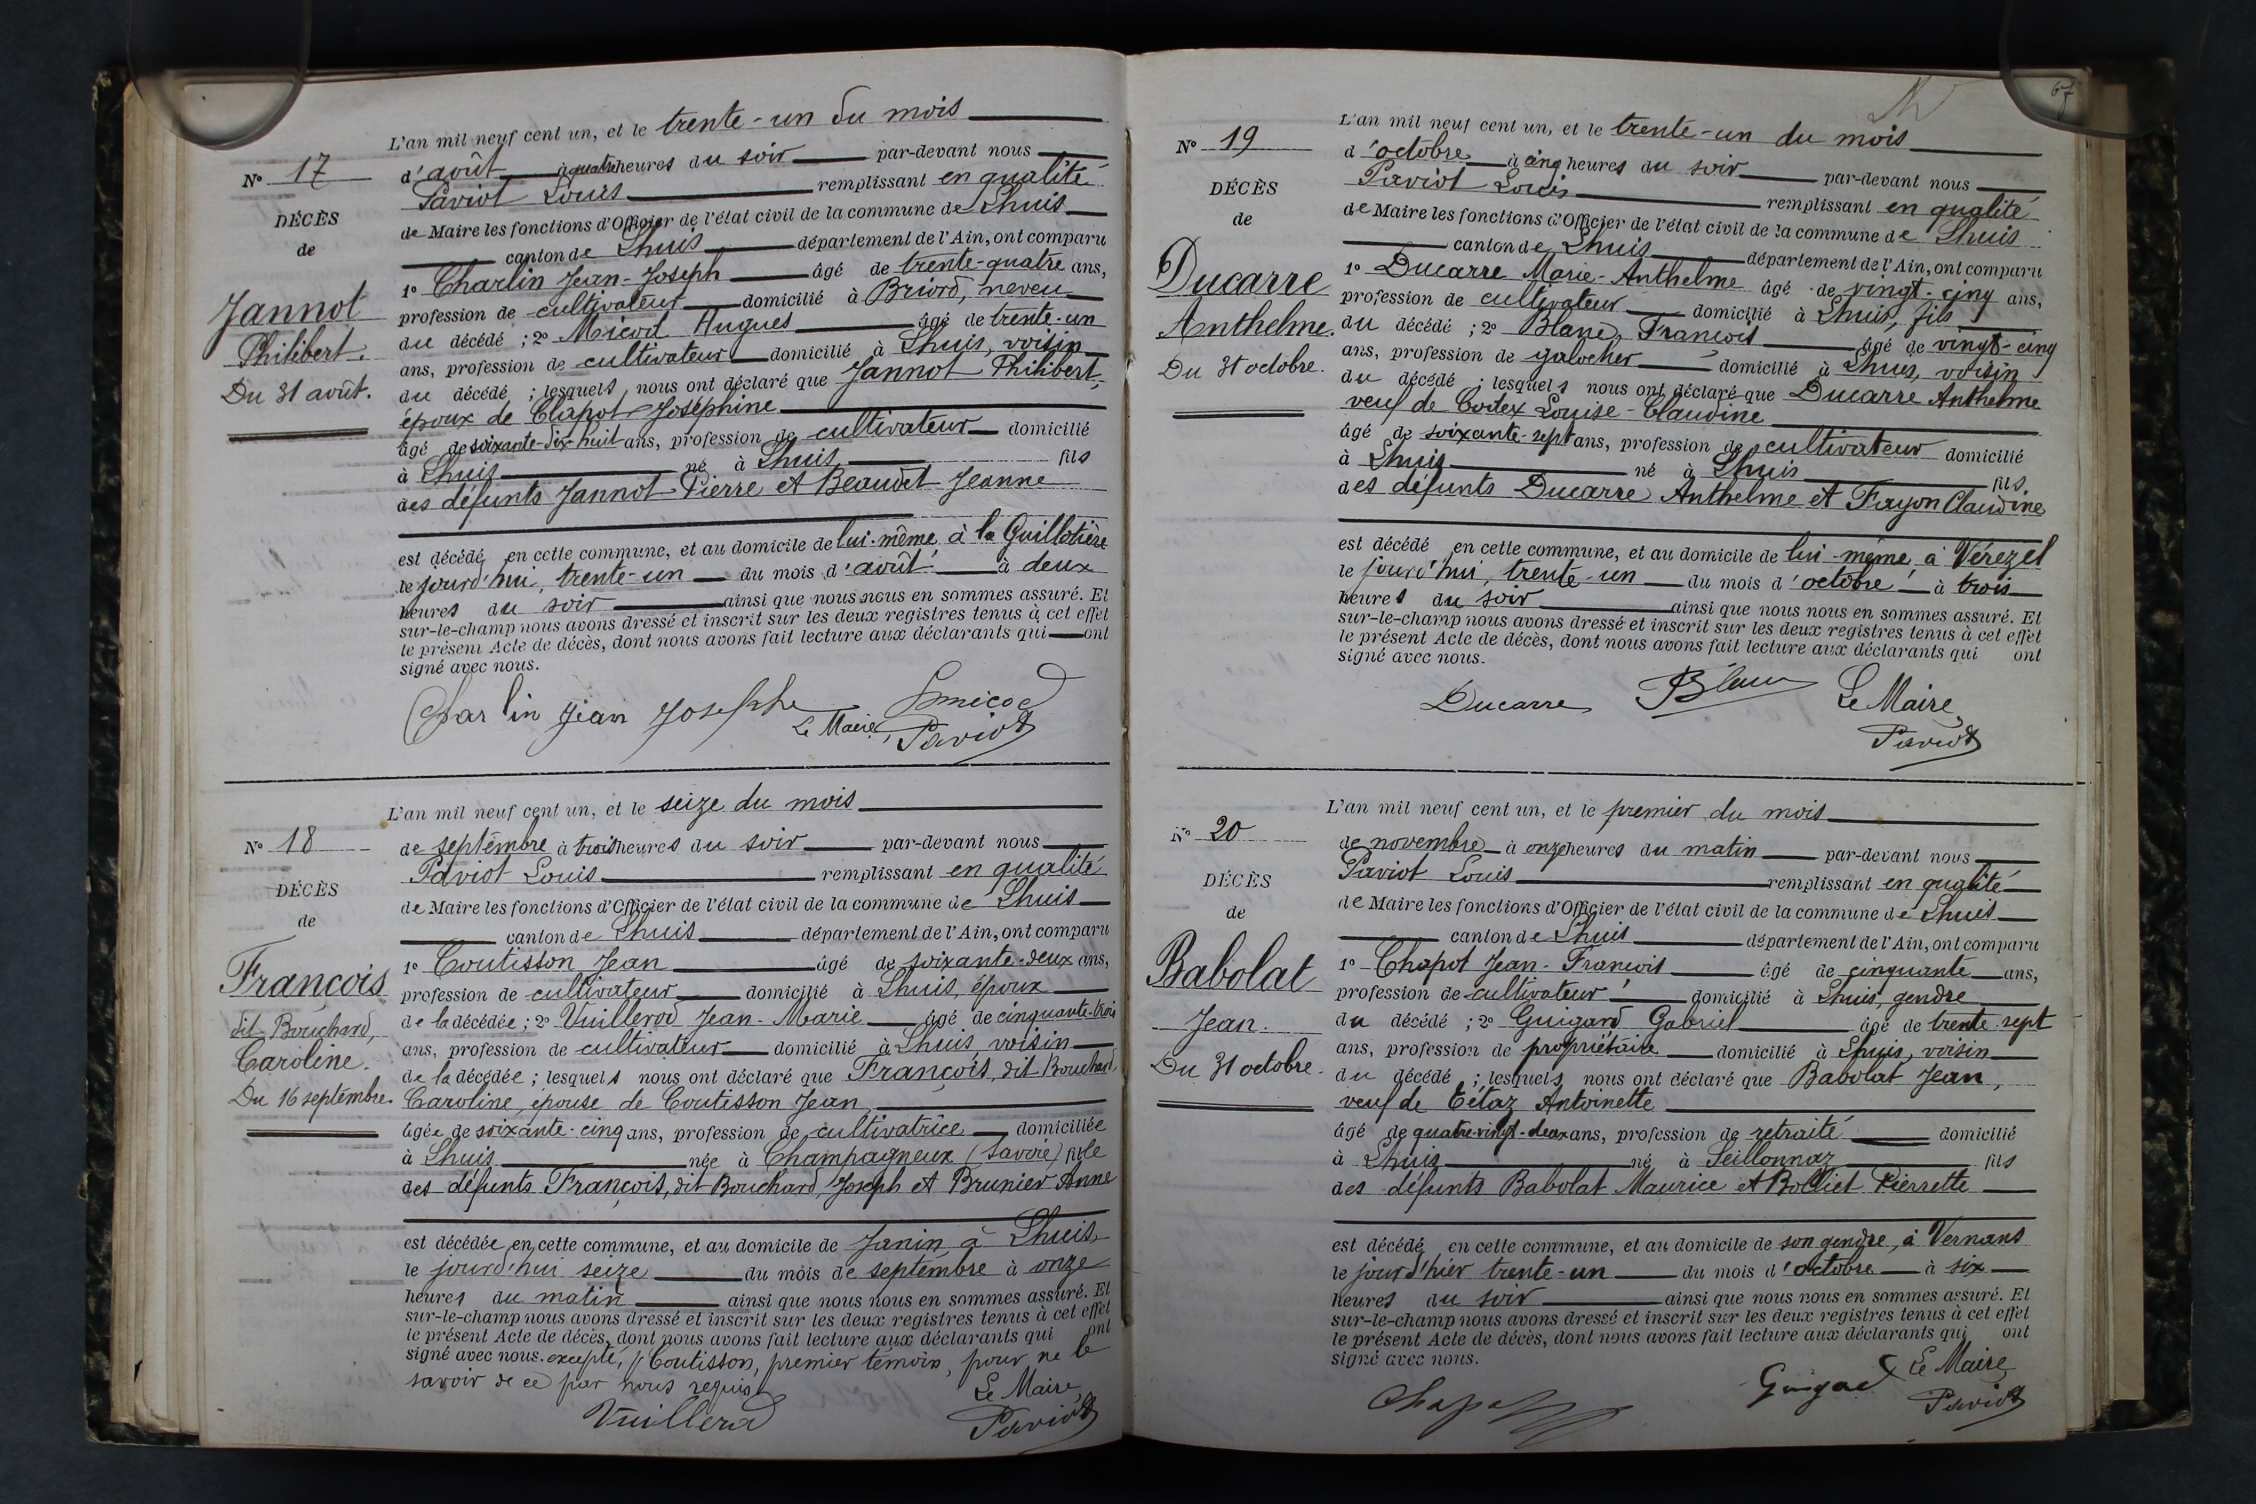 L'an mil neuf cent un, et le trente-un du mois
N° 17
d'août à quatre heures du soir par-devant nous
Paviot Louis remplissant en qualité
DÉCÈS
de Maire les fonctions d'Officier de l'état civil de la commune de Lhuis
de
canton de Lhuis département de l'Ain, ont comparu
1° Charlin Jean-Joseph âgé de trente-quatre ans,
Jannot
profession de cultivateur domicilié à Briord, neveu
Philibert.
du décédé ; 2° Micod Hugues âgé de trente-un
ans, profession de cultivateur domicilié à Lhuis, voisin
Du 31 août.
du décédé ; lesquels nous ont déclaré que Jannot Philibert,
époux de Chapot Joséphine
âgé de soixante-dix-huit ans, profession de cultivateur domicilié
à Lhuis né à Lhuis fils
des défunts Jannot Pierre et Beaudet Jeanne
est décédé en cette commune, et au domicile de lui-même à la Guillotière
le jourd'hui, trente-un du mois d'août à deux
heures du soir ainsi que nous nous en sommes assuré. Et
sur-le-champ nous avons dressé et inscrit sur les deux registres tenus à cet effet
le présent Acte de décès, dont nous avons fait lecture aux déclarants qui ont
signé avec nous.
Charlin jean josephe
Le Maire,
Paviot
L'an mil neuf cent un, et le seize du mois
N° 18
de septembre à trois heures du soir par-devant nous
Paviot Louis remplissant en qualité
DÉCÈS
de Maire les fonctions d'Officier de l'état civil de la commune de Lhuis
de
canton de Lhuis département de l'Ain, ont comparu
1° Coutisson Jean âgé de soixante-deux ans,
François
profession de cultivateur domicilié à Lhuis, époux
dit Bouchard,
de la décédée ; 2° Vuillerod Jean-Marie âgé de cinquante-trois
Caroline.
ans, profession de cultivateur domicilié à Lhuis, voisin
de la décédée ; lesquels nous ont déclaré que François, dit Bouchard,
Du 16 septembre.
Caroline, épouse de Coutisson Jean
âgée de soixante-cinq ans, profession de cultivatrice domiciliée
à Lhuis née à Champagneux (Savoie) fille
des défunts François, dit Bouchard, Joseph et Brunier Anne
est décédée en cette commune, et au domicile de Janin à Lhuis
le jourd'hui seize du mois de septembre à onze
heures du matin ainsi que nous nous en sommes assuré. Et
sur-le-champ nous avons dressé et inscrit sur les deux registres tenus à cet effet
le présent Acte de décès, dont nous avons fait lecture aux déclarants qui ont
signé avec nous. excepté, Coutisson, premier témoin, pour ne le
savoir de ce par nous requis
Le Maire,
Vuillerod
Paviot
67
L'an mil neuf cent un, et le trente-un du mois
N° 19
d'octobre à cinq heures du soir par-devant nous
Paviot Louis remplissant en qualité
DÉCÈS
de Maire les fonctions d'Officier de l'état civil de la commune de Lhuis
de
canton de Lhuis département de l'Ain, ont comparu
Ducarre
1° Ducarre Marie-Anthelme âgé de vingt-cinq ans,
profession de cultivateur domicilié à Lhuis, fils
Anthelme.
du décédé ; 2° Blanc François âgé de vingt-cinq
ans, profession de galocher domicilié à Lhuis, voisin
Du 31 octobre.
du décédé ; lesquels nous ont déclaré que Ducarre Anthelme
veuf de Cortex Louise-Claudine
âgé de soixante-sept ans, profession de cultivateur domicilié
à Lhuis né à Lhuis fils
des défunts Ducarre Anthelme et Fayon Claudine
est décédé en cette commune, et au domicile de lui-même à Vérezel
le jourd'hui, trente-un du mois d'octobre à trois
heures du soir ainsi que nous nous en sommes assuré. Et
sur-le-champ nous avons dressé et inscrit sur les deux registres tenus à cet effet
le présent Acte de décès, dont nous avons fait lecture aux déclarants qui ont
signé avec nous.
Ducarre Blanc Le Maire,
Paviot
L'an mil neuf cent un, et le premier du mois
N° 20
de novembre à onze heures du matin par-devant nous
Paviot Louis remplissant en qualité
DÉCÈS
de Maire les fonctions d'Officier de l'état civil de la commune de Lhuis
de
canton de Lhuis département de l'Ain, ont comparu
Babolat
1° Chapot Jean-François âgé de cinquante ans,
profession de cultivateur domicilié à Lhuis, gendre
Jean.
du décédé ; 2° Guigard Gabriel âgé de trente-sept
ans, profession de propriétaire domicilié à Lhuis, voisin
Du 31 octobre.
du décédé ; lesquels nous ont déclaré que Babolat Jean,
veuf de Tétaz Antoinette
âgé de quatre-vingt-deux ans, profession de retraité domicilié
à Lhuis né à Seillonnaz fils
des défunts Babolat Maurice et Bolliet Pierrette
est décédé en cette commune, et au domicile de son gendre, à Vernans
le jour d'hier trente-un du mois d'octobre à six
heures du soir ainsi que nous nous en sommes assuré. Et
sur-le-champ nous avons dressé et inscrit sur les deux registres tenus à cet effet
le présent Acte de décès, dont nous avons fait lecture aux déclarants qui ont
signé avec nous.
Chapot Guigard Le Maire,
Paviot